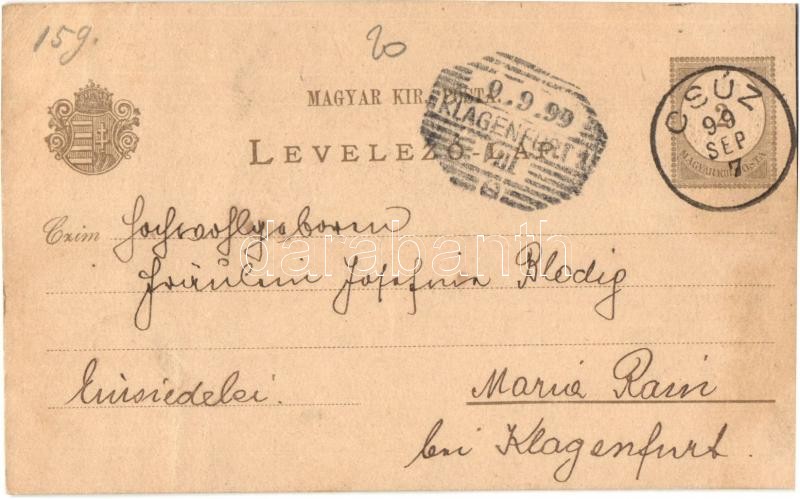 159.
20
MAGYAR KIR. POSTA.
LEVELEZŐ-LAP.
9.9.99
KLAGENFURT 1
VIII
2
CSÚZ
99
SEP
7
MAGYAR KIR. POSTA
Czim
Hochwohlgeboren
Fräulein Josefine Blodig
Einsiedelei.
Maria Rain
bei Klagenfurt.
darabanth